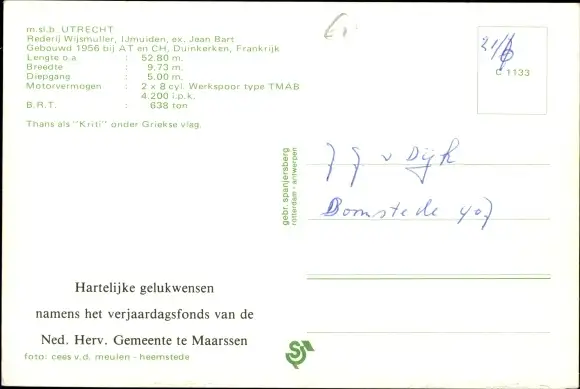 m.sl.b. UTRECHT
Rederij Wijsmuller, IJmuiden, ex. Jean Bart
Gebouwd 1956 bij AT en CH, Duinkerken, Frankrijk
Lengte o.a. : 52.80 m.
Breedte : 9.73 m.
Diepgang : 5.00 m.
Motorvermogen : 2 x 8 cyl. Werkspoor type TMAB
4.200 i.p.k.
B.R.T. : 638 ton
Thans als "Kriti" onder Griekse vlag.
C 1133
gebr. spanjersberg
rotterdam - antwerpen
v Dijk
Domstede 407
Hartelijke gelukwensen
namens het verjaardagsfonds van de
Ned. Herv. Gemeente te Maarssen
foto: cees v.d. meulen - heemstede